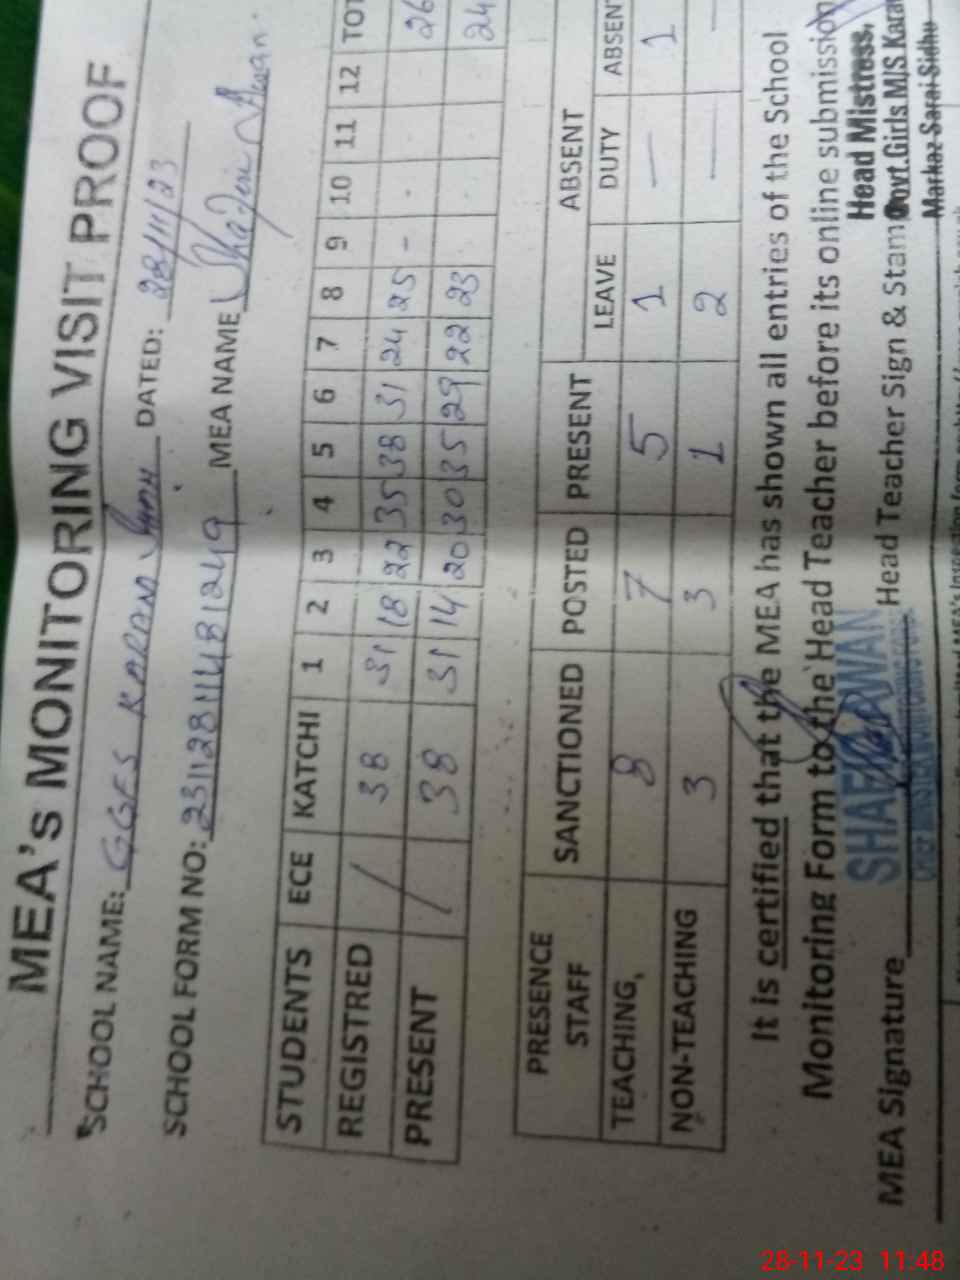 MEA's MONITORING VISIT PROOF
SCHOOL NAME: GGES KARAM DATED: 28/11/23
SCHOOL FORM NO: 23112811481249 MEA NAME Shafeeq Awan.
STUDENTS ECE KATCHI 1 2 3 4 5 6 7 8 9 10 11 12 TOT
REGISTRED / 38 31 18 22 35 38 31 24 25 - - - - 26
PRESENT / 38 31 14 20 30 35 29 22 23 24
PRESENCE STAFF SANCTIONED POSTED PRESENT ABSENT
LEAVE DUTY ABSENT
TEACHING, 8 7 5 1 — 1
NON-TEACHING 3 3 1 2 — —
It is certified that the MEA has shown all entries of the School
Monitoring Form to the Head Teacher before its online submission
Head Mistress,
MEA Signature SHAFI AWAN Head Teacher Sign & Stamp Govt.Girls M/S Karam
Markaz Sarai Sidhu
28-11-23 11:48